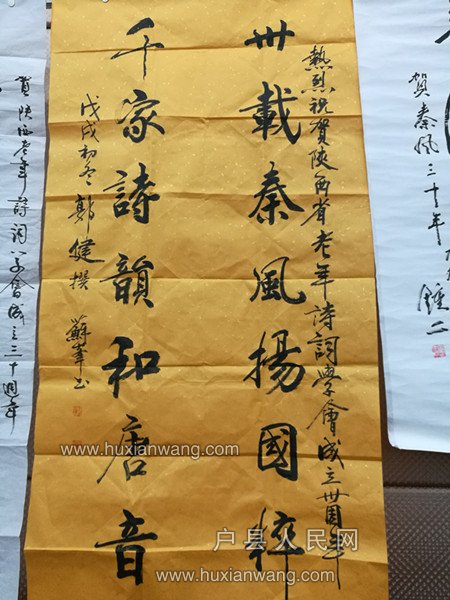 賀秦風三十年
熱烈祝賀陝西省老年詩詞學會成立卅周年
卅載秦風揚國粹
千家詩韻和唐音
戊戌初冬郭健撰
蘇峯书
賀陕西老年詩詞学會成立三十週年
www.huxianwang.com
户县人民网
www.huxianwang.com